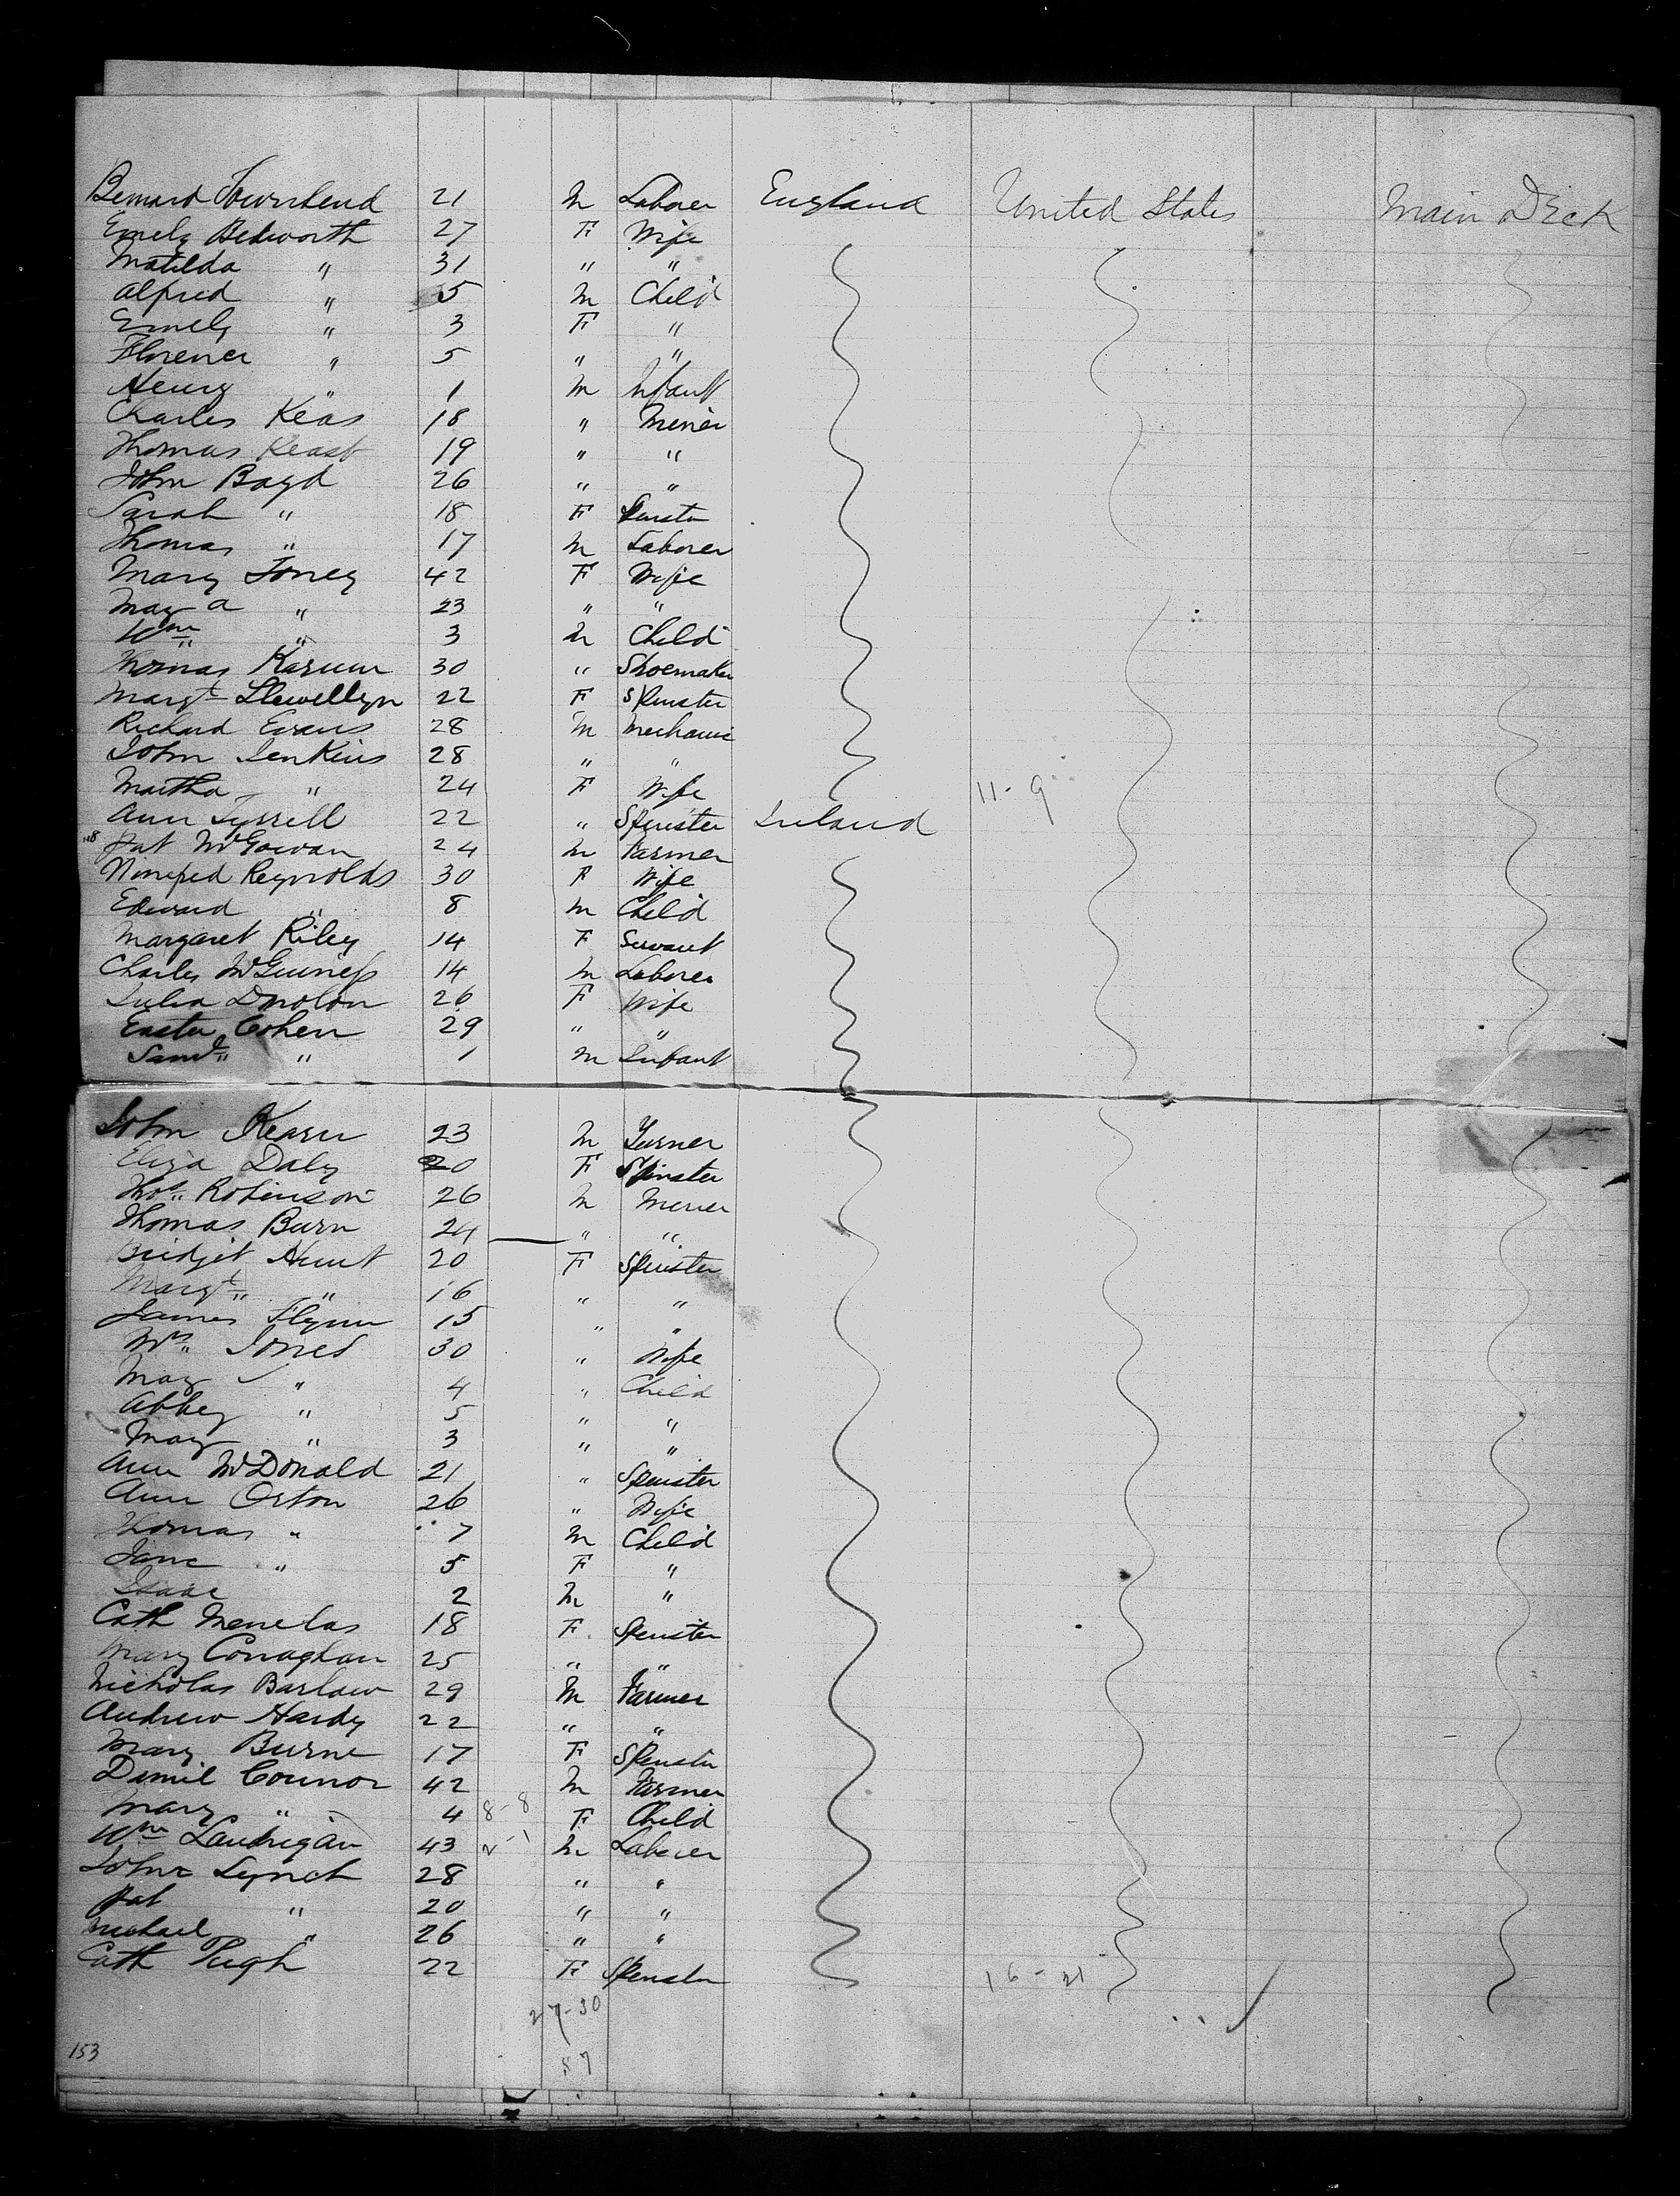 Bernard Townshend 21 M Laborer England United States Main Deck
Emely Bedworth 27 F Wife
Matilda " 31 " "
Alfred " 5 M Child
Emely " 3 F "
Florence " 5 " "
Henry " 1 M Infant
Charles Keas 18 " Miner
Thomas Keast 19 " "
John Boyd 26 " "
Sarah " 18 F Spinster
Thomas " 17 M Laborer
Mary Toney 42 F Wife
May A " 23 " "
Wm " 3 M Child
Thomas 30 " Shoemaker
Margt Llewellyn 22 F Spinster
Richard Evans 28 M Mechanic
John Jenkins 28 " "
Martha " 24 F Wife 11-9
Ann Tyrrell 22 " Spinster Ireland
Pat McGowan 24 M Farmer
Reynolds 30 F Wife
Edward " 8 M Child
Margaret Riley 14 F Servant
Charles McGuiness 14 M Laborer
Julia 26 F Wife
Easter Cohen 29 " "
Saml " 1 M Infant
John Kearn 23 M Turner
Eliza Daly 20 F Spinster
Thos Robinson 26 M Miner
Thomas Burn 24 " "
Bridget Hunt 20 F Spinster
Margt " 16 " "
James Flynn 15 " "
Mrs Jones 30 " Wife
May " 4 " Child
Abbey " 5 " "
May " 3 " "
Ann McDonald 21 " Spinster
Ann Orton 26 " Wife
Thomas " 7 M Child
Jane " 5 F "
Isaac 2 M "
Cath Menelas 18 F Spinster
Mary Conaghan 25 " "
Nicholas Barlow 29 M Farmer
Andrew Hardy 22 " "
Mary Burne 17 F Spinster
Daniel Connor 42 M Farmer
Mary " 4 8-8 F Child
Wm Landrigan 43 M Laborer
John Lynch 28 " "
Pat " 20 " "
Michael " 26 " "
Cath Pugh 22 F Spinster 16-21
27-30
57
153